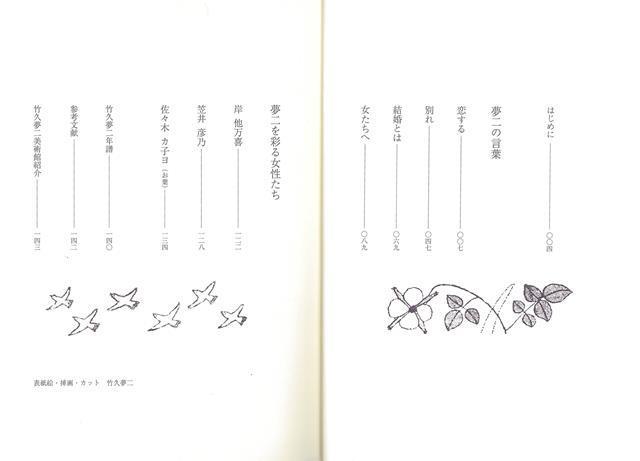 はじめに────〇〇四
夢二の言葉
恋する────〇〇七
別れ────〇四七
結婚とは────〇六九
女たちへ────〇八九
夢二を彩る女性たち
岸 他万喜────一二二
笠井 彦乃────一二八
佐々木 カ子ヨ(お葉)────一三四
竹久夢二年譜────一四〇
参考文献────一四二
竹久夢二美術館紹介────一四三
表紙絵・挿画・カット 竹久夢二